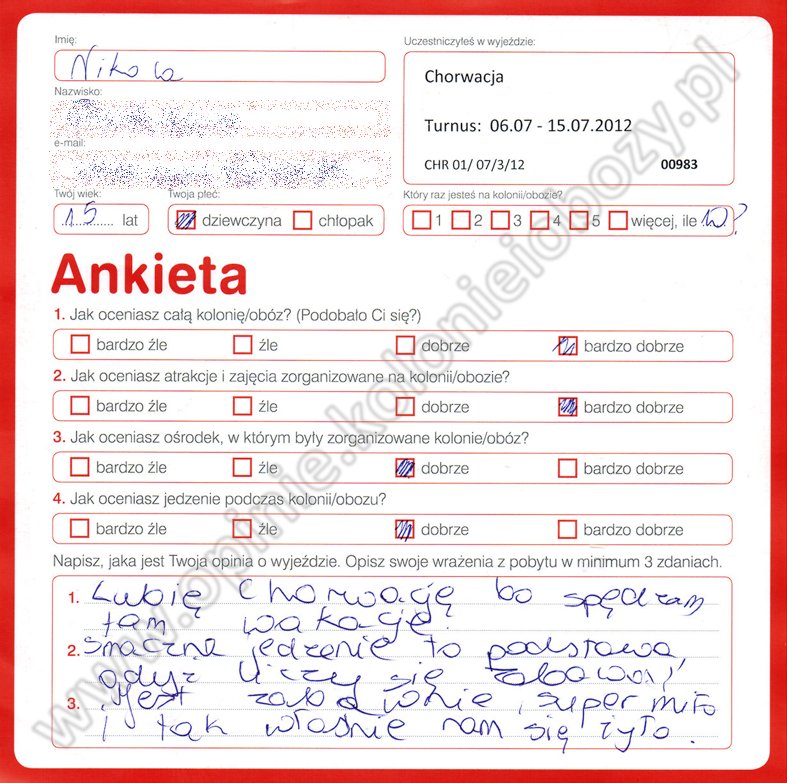 Imię:
Nikola
Uczestniczyłeś w wyjeździe:
Chorwacja
Turnus: 06.07 - 15.07.2012
CHR 01/ 07/3/12 00983
Nazwisko:
e-mail:
Twój wiek:
15 lat
Twoja płeć:
dziewczyna chłopak
Który raz jesteś na kolonii/obozie?
1 2 3 4 5 więcej, ile 10?
Ankieta
1. Jak oceniasz całą kolonię/obóz? (Podobało Ci się?)
bardzo źle źle dobrze bardzo dobrze
2. Jak oceniasz atrakcje i zajęcia zorganizowane na kolonii/obozie?
bardzo źle źle dobrze bardzo dobrze
3. Jak oceniasz ośrodek, w którym były zorganizowane kolonie/obóz?
bardzo źle źle dobrze bardzo dobrze
4. Jak oceniasz jedzenie podczas kolonii/obozu?
bardzo źle źle dobrze bardzo dobrze
Napisz, jaka jest Twoja opinia o wyjeździe. Opisz swoje wrażenia z pobytu w minimum 3 zdaniach.
1. Lubię Chorwację bo spędzam
tam wakacje.
2. Smaczne jedzenie to podstawa,
gdyż liczy się zabawa!
3. Jest zabawnie, super miło
i tak właśnie nam się żyło.
www.opinie.kolonieiobozy.pl